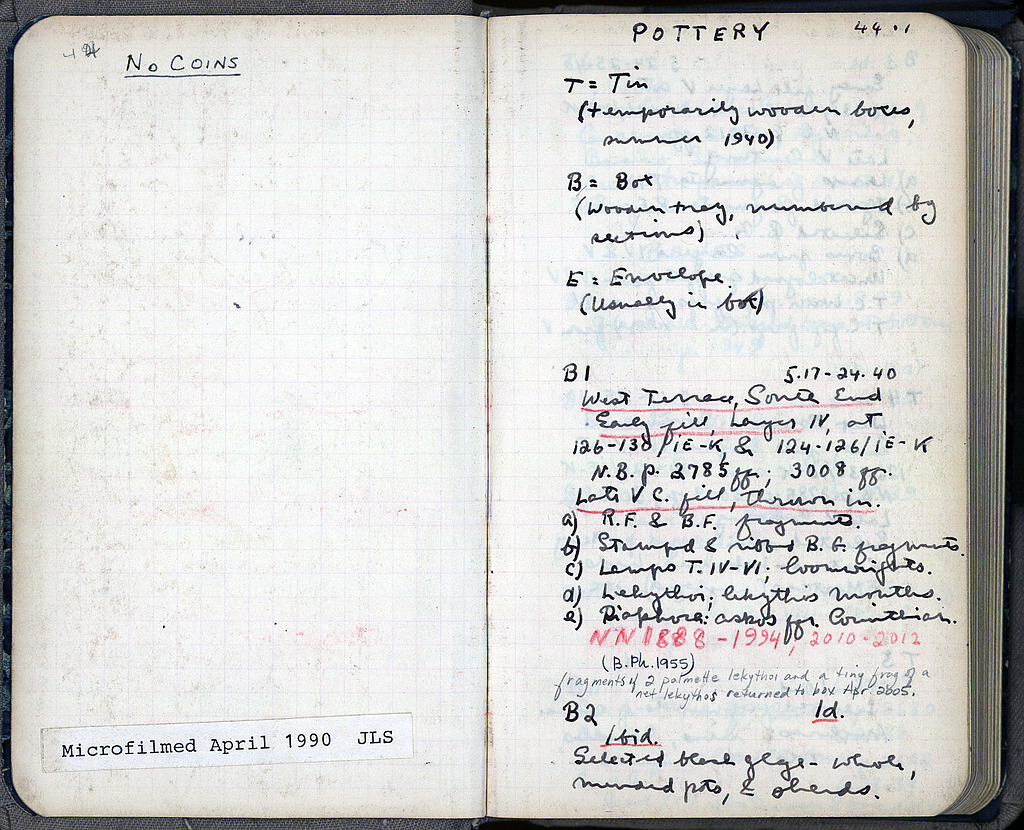 No COINS
Microfilmed April 1990 JLS
POTTERY 44.1
T = Tin
(temporarily wooden boxes,
summer 1940)
B = Box
(Wooden tray, numbered by
sections)
E = Envelope.
(Usually in box)
B1 5.17-24.40
West Terrace, South End
Early fill, Layer IV, at
126-130/IE-K, & 124-126/IE-K
N.B. p. 2785 ff; 3008 ff.
Late V C. fill, thrown in.
a) R.F. & B.F. fragments.
b) Stamped & ribbed B.G. fragments.
c) Lamps T. IV-VI; loomweights.
d) Lekythoi; lekythis mouths.
e) Diaphora: askos fr, Corinthian.
NN 1888-1994, 2010-2012
(B.Ph. 1955)
fragments of 2 palmette lekythoi and a tiny frag of a
net lekythos returned to box Apr. 2005.
B2 Id.
Ibid.
Selected black glaze - whole,
mended pots, & sherds.